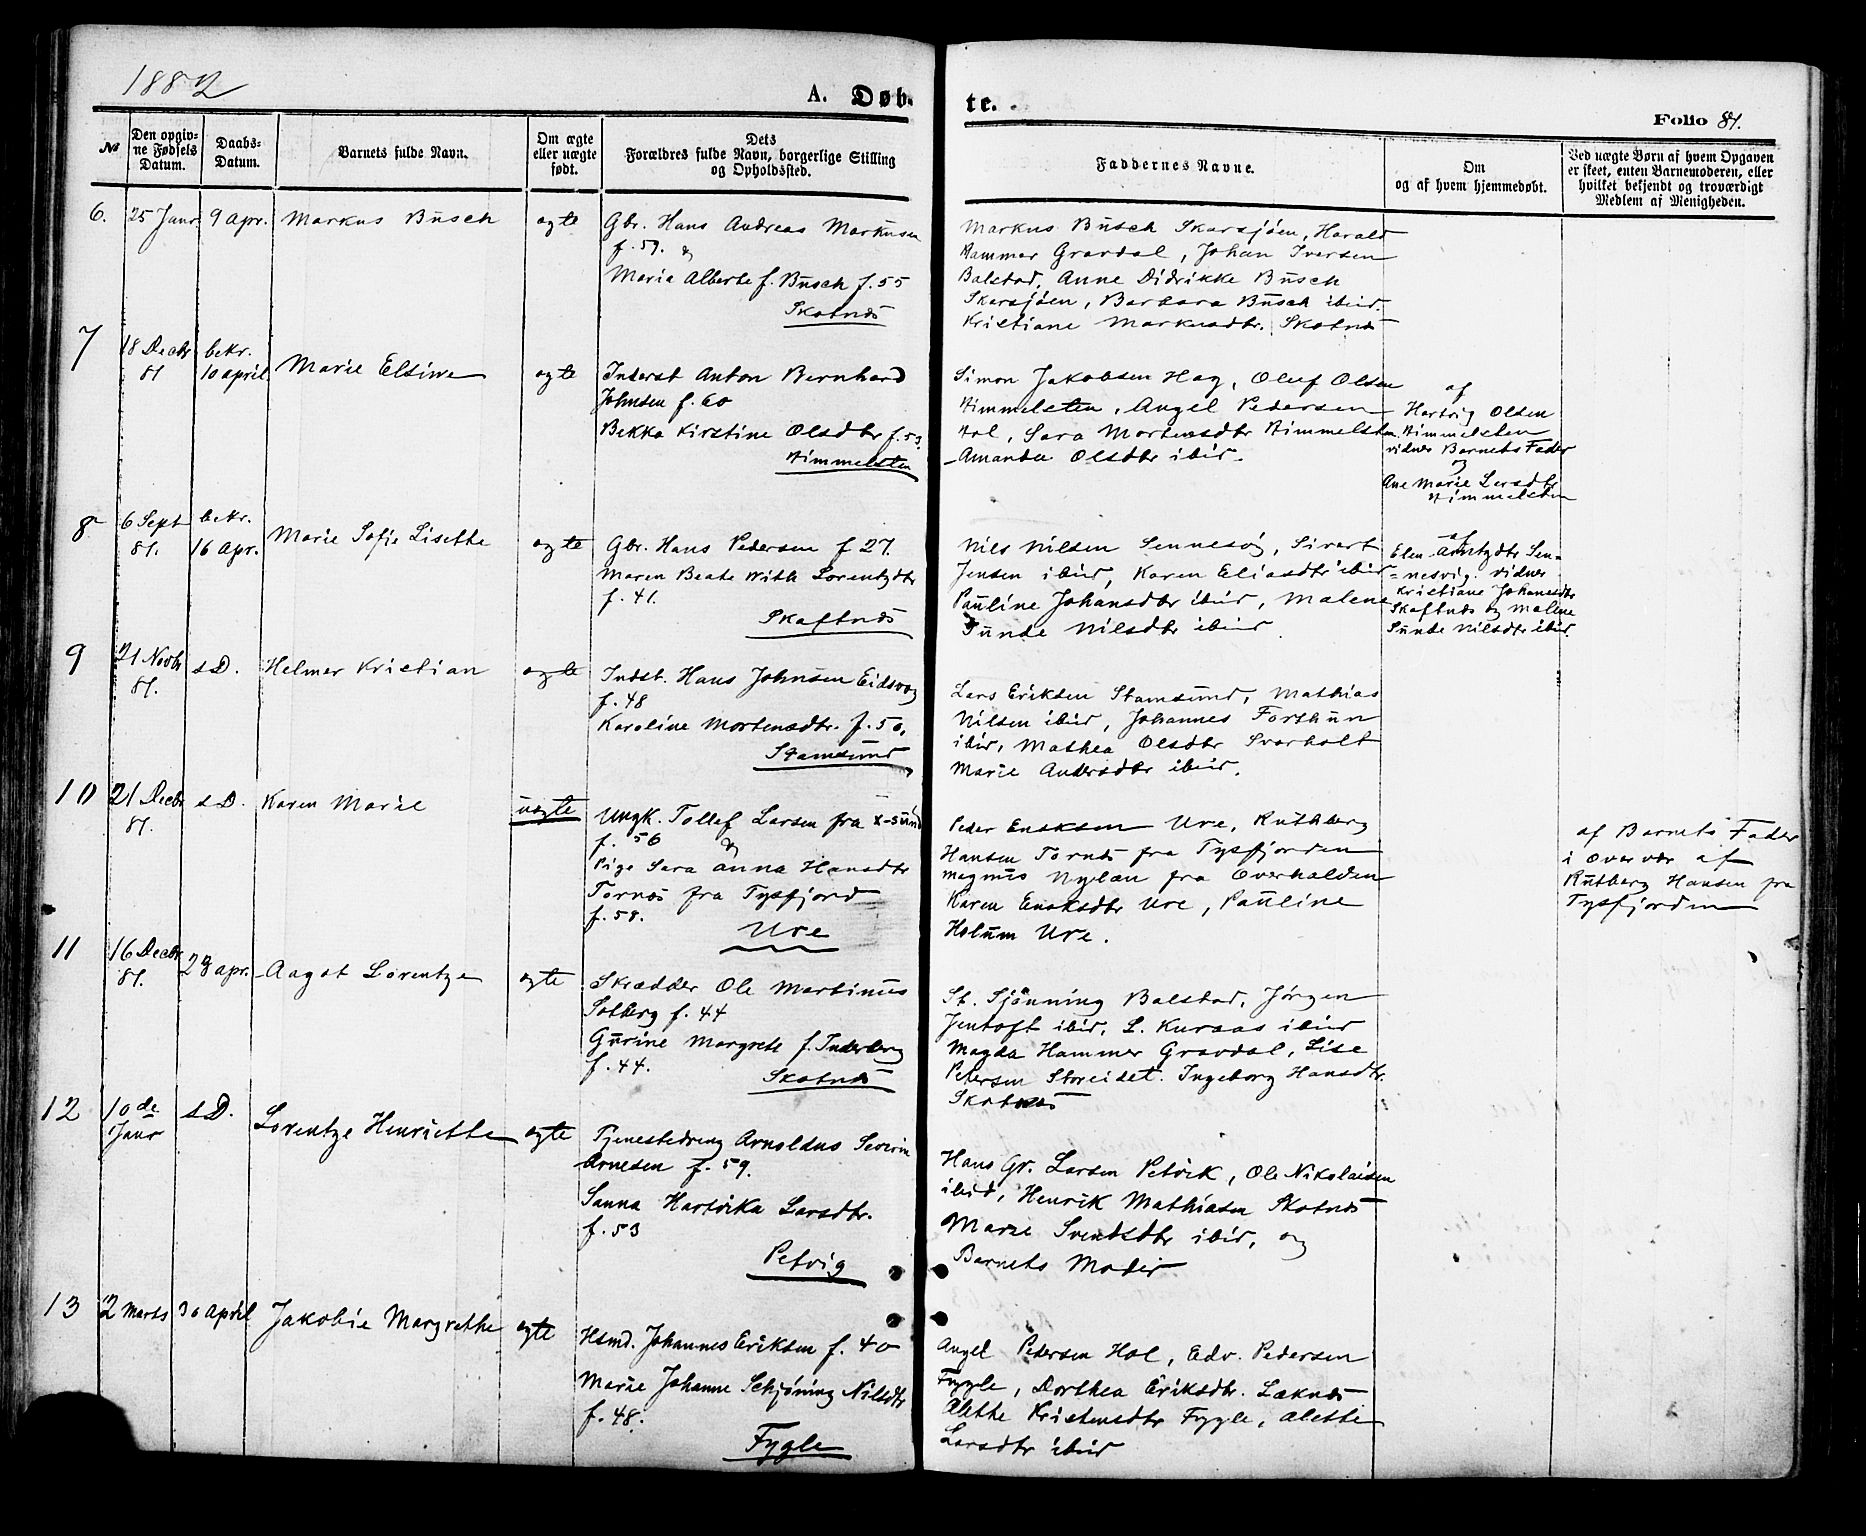 1882
A. Døb-
te.
Folio 81.
No
Den opgiv-
ne Fødsels
Datum.
Daabs-
Datum.
Barnets fulde Navn.
Om ægte
eller uægte
født.
Dets
Forældres fulde Navn, borgerlige Stilling
og Opholdssted.
Faddernes Navne.
Om
og af hvem hjemmedøbt.
Ved uægte Børn af hvem Opgaven
er skeet, enten Barnemoderen, eller
hvilket bekjendt og troværdigt
Medlem af Menigheden.
6.
25 Janr
9 apr.
Markus Busch
ægte
Gbr. Hans Andreas Markusen
f. 59. &
Maria Alberte f. Busch f. 55
Skotnæs
Markus Busch Skarsjøen, Harald
Hammer Gravdal, Johan Iversen
Balstad, Anne Didrikke Busch
Skarsjøen, Barbara Busch ibid.
Kristiane Markusdtr. Skotnæs
7
18 Decbr
81
bekr.
10 april
Marie Elsine
ægte
Inderst Anton Bernhard
Johnsen f. 60
Bekka Kirstine Olsdtr f. 53
Himmelsten
Simon Jakobsen Hag, Oluf Olsen
Himmelsten, Angel Pedersen
Hol, Sara Mortensdtr Himmelsten
Amanda Olsdtr ibid.
af
Hartvig Olsen
Himmelsten
vidner Barnets Fader
og
Ane Marie Larsdtr
Himmelsten
8
6 Sept
81.
bekr.
16 Apr.
Marie Sofie Lisette
ægte
Gbr. Hans Pedersen f 27.
Maren Beate With Lorentzdtr
f. 41.
Skaftnæs
Nils Nilsen Sennesvig, Sivert
Jensen ibid, Karen Eliasdtr ibid
Pauline Johansdtr ibid, Malene
Sunde Nilsdtr ibid.
af
Elen Arntzdtr Sen-
=nesvig. vidner
Kristiane Johansdtr
Skaftnæs og Malene
Sunde Nilsdtr ibid
9
21 Novbr
81.
s D.
Helmer Kristian
ægte
Indst. Hans Johnsen Eidsvag
f. 48
Karoline Mortensdtr. f. 50,
Stamsund
Lars Eriksen Stamsund, Mathias
Nilsen ibid, Johannes Forthun
ibid, Mathea Olsdtr Svarholt
Marie Andersdtr ibid.
10
21 Decbr
81.
s D.
Karen Marie
uægte
Ungk. Tollef Larsen fra X-sund
f. 56 &
Pige Sara Anna Hansdtr
Tornæs fra Tysfjord
f. 58.
Ure
Peder Enoksen Ure, Rutberg
Hansen Tornæs fra Tysfjorden
Magnus Nylæn fra Overhalden
Karen Enoksdtr Ure, Pauline
Holum Ure.
af Barnets Fader
i overvær af
Rutberg Hansen fra
Tysfjorden
11
16 Decbr
81.
23 apr.
Aagot Lorentze
ægte
Skrædder Ole Martinus
Solberg f. 44
Gurine Margrete f. Inderberg
f. 44.
Skotnæs
St. Sjønning Balstad, Jørgen
Jentoft ibid, L. Kuraas ibid
Magda Hammer Gravdal, Lise
Petersen Storeidet. Ingeborg Hansdtr.
Skotnæs
12
10de
Janr
s D.
Lorentze Henriette
ægte
Tjenestedreng Arnoldus Severin
Arnesen f. 59.
Sanna Hartvika Larsdtr.
f. 53
Petvig
Hans Gr. Larsen Petvik, Ole Nikolaisen
ibid, Henrik Mathiasen Skotnæs
Marie Svendsdtr ibid, og
Barnets Moder
13
2 Marts
30 April
Jakobie Margrethe
ægte
Hsmd. Johannes Eriksen f. 40
Marie Johanne Schjøning Nilsdtr
f. 48.
Fygle
Angel Pedersen Hol, Edv. Pedersen
Fygle, Dorthea Eriksdtr. Læknæs
Alette Kristensdtr Fygle, Alette
Larsdtr ibid